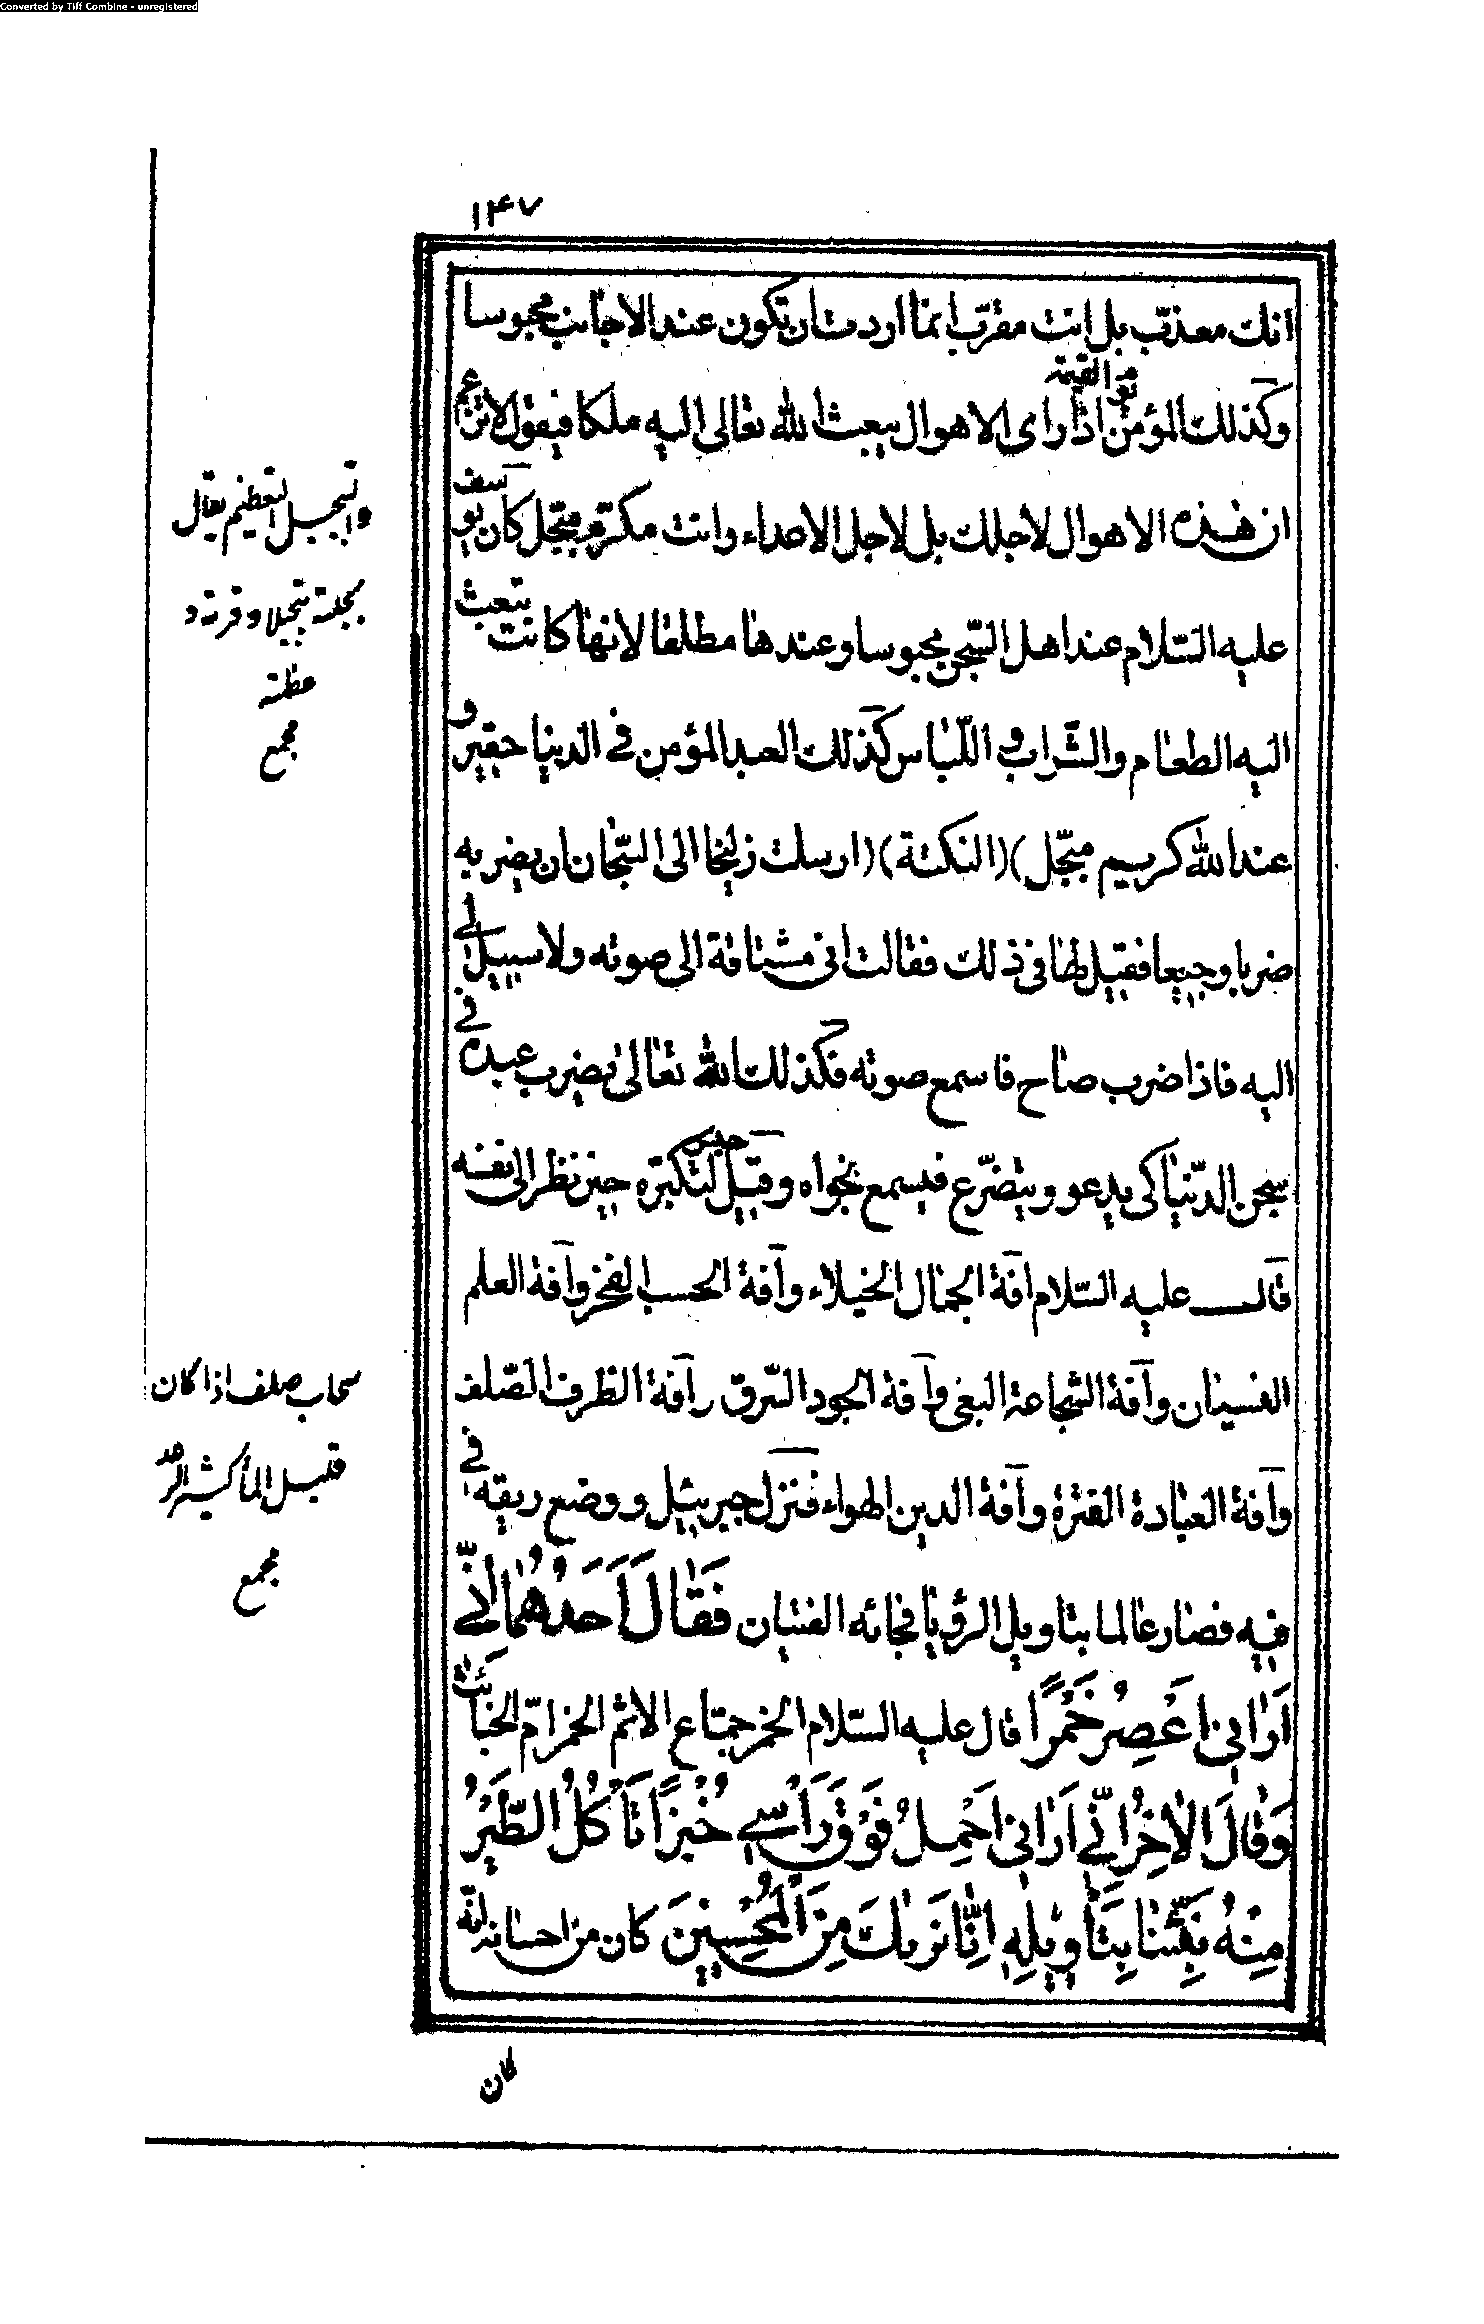 Converted by Tiff Combine - unregistered
١۴٧
انك معذب بل انت مقرب انما اردت ان تكون عند الاجانب محبوسا
وكذلك المؤمن اذا راى الاهوال يوم القيمة يبعث الله تعالى اليه ملكا فيقول لا تزعم
ان هذه الاهوال لاجلك بل لاجل الاعداء وانت مكرم مبجل كان يوسف
عليه السّلام عند اهل السّجن محبوسا وعندها مطلقا لانها كانت تبعث
اليه الطعام والشراب و اللّباس كذلك العبد المؤمن فى الدنيا حقير و
عند الله كريم مبجّل) (النكتة) (ارسلت زليخا الى السّجان ان يضربه
ضربا وجيعا فقيل لها فى ذلك فقالت انى مشتاقة الى صوته ولا سبيل لى
اليه فاذا ضرب صاح فاسمع صوته فكذلك الله تعالى يضرب عبده فى
سجن الدّنيا كى يدعو ويتضرّع فيسمع نجواه وقيل حبس لتكبّره حين نظر الى نفسه
قال عليه السّلام آفة الجمال الخيلاء وآفة الحسب الفخر وآفة العلم
النسيان وآفة الشجاعة البغى وآفة الجود السّرف وآفة الظرف الصّلف
وآفة العبادة الفترة وآفة الدين الهواء فنزل جبرئيل ووضع ريقه فى
فيه فصار عالما بتاويل الرؤيا فجائه الفتيان فَقَالَ اَحَدُهُمَا اِنّى
اَرَانى اَعْصِرُ خَمْرًا قال عليه السّلام الخمر جماع الاثم الخمر امّ الخبائث
وَقَالَ الْاٰخِرُ اِنّى اَرَانى اَحْمِلُ فَوْقَ رَأْسى خُبْزًا تَأْكُلُ الطَّيْرُ
مِنْهُ نَبِّئْنَا بِتَأْويلِهِ اِنَّا نَرٰيكَ مِنَ الْمُحْسِنينَ كان من احسانه انّه
كان
والتبجيل التعظيم يقال
بجلته تبجيلا وقرته و
عظمته
مجمع
سحاب صلف اذا كان
قليل الماء كثير الرعد
مجمع